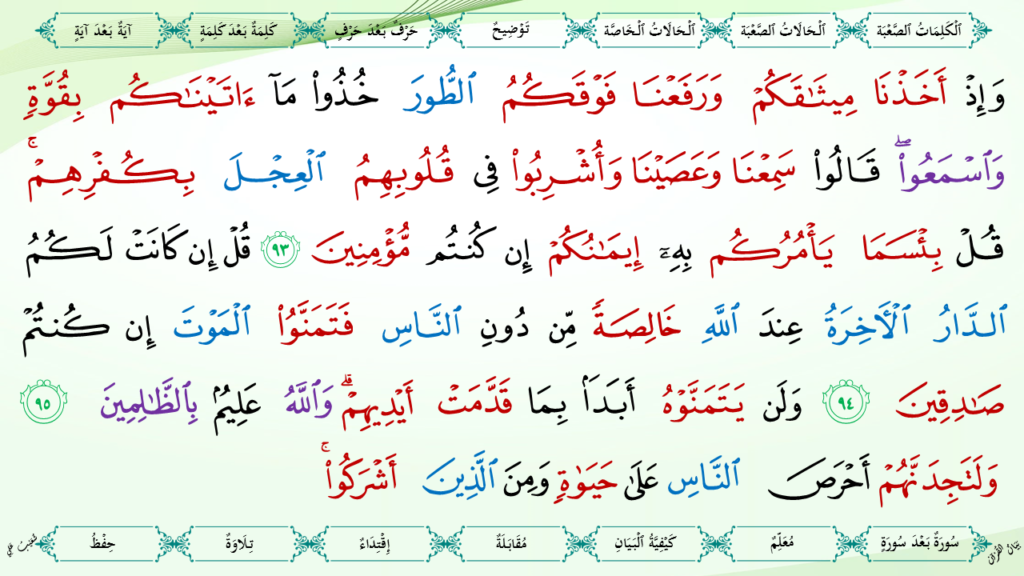 ٱلْكَلِمَاتُ ٱلصَّعْبَة ٱلْحَالَاتُ ٱلصَّعْبَة ٱلْحَالَاتُ ٱلْخَاصَّة تَوْضِيحٌ حَرْفٌ بَعْدَ حَرْفٍ كَلِمَةٌ بَعْدَ كَلِمَةٍ آيَةٌ بَعْدَ آيَةٍ
وَإِذْ أَخَذْنَا مِيثَٰقَكُمْ وَرَفَعْنَا فَوْقَكُمُ ٱلطُّورَ خُذُوا۟ مَآ ءَاتَيْنَٰكُم بِقُوَّةٍ
وَٱسْمَعُوا۟ ۖ قَالُوا۟ سَمِعْنَا وَعَصَيْنَا وَأُشْرِبُوا۟ فِى قُلُوبِهِمُ ٱلْعِجْلَ بِكُفْرِهِمْ ۚ
قُلْ بِئْسَمَا يَأْمُرُكُم بِهِۦٓ إِيمَٰنُكُمْ إِن كُنتُم مُّؤْمِنِينَ ٩٣ قُلْ إِن كَانَتْ لَكُمُ
ٱلدَّارُ ٱلْـَٔاخِرَةُ عِندَ ٱللَّهِ خَالِصَةً مِّن دُونِ ٱلنَّاسِ فَتَمَنَّوُا۟ ٱلْمَوْتَ إِن كُنتُمْ
صَٰدِقِينَ ٩٤ وَلَن يَتَمَنَّوْهُ أَبَدًۢا بِمَا قَدَّمَتْ أَيْدِيهِمْ ۗ وَٱللَّهُ عَلِيمٌۢ بِٱلظَّٰلِمِينَ ٩٥
وَلَتَجِدَنَّهُمْ أَحْرَصَ ٱلنَّاسِ عَلَىٰ حَيَوٰةٍ وَمِنَ ٱلَّذِينَ أَشْرَكُوا۟ ۚ
سُورَةٌ بَعْدَ سُورَةٍ مُعَلِّمٌ كَيْفِيَّةُ ٱلْبَيَانِ مُقَابَلَةٌ إِقْتِدَاءٌ تِلَاوَةٌ حِفْظٌ
بَيَانُ القُرْآن